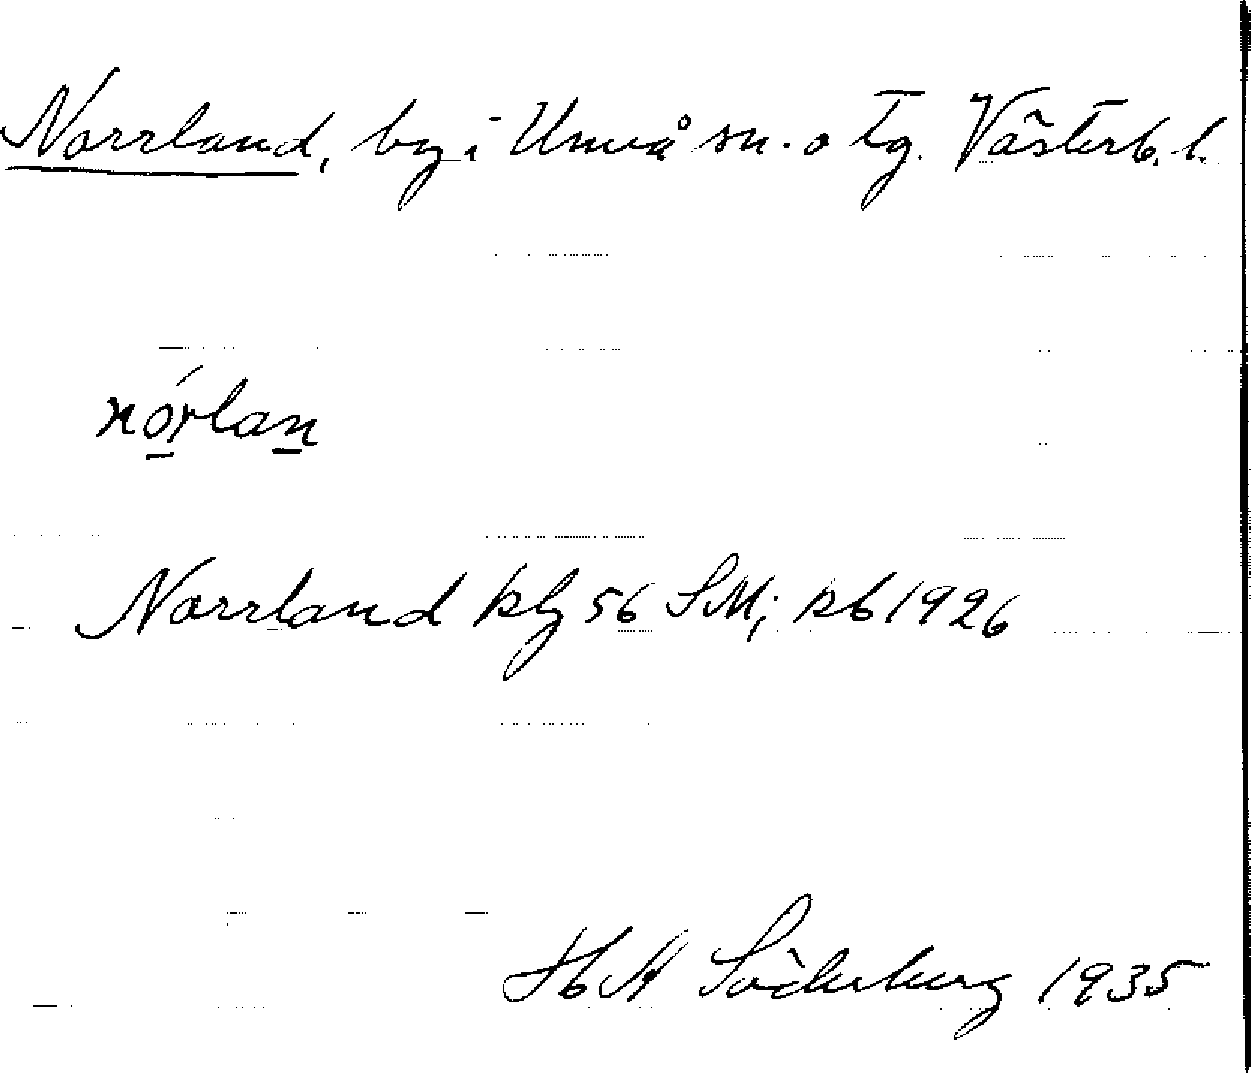 Norrland, by i Umeå sn. o tg. Västerb. l.
nórlan
Norrland kbg 56 SM; kb 1926
Hb A Söderberg 1935